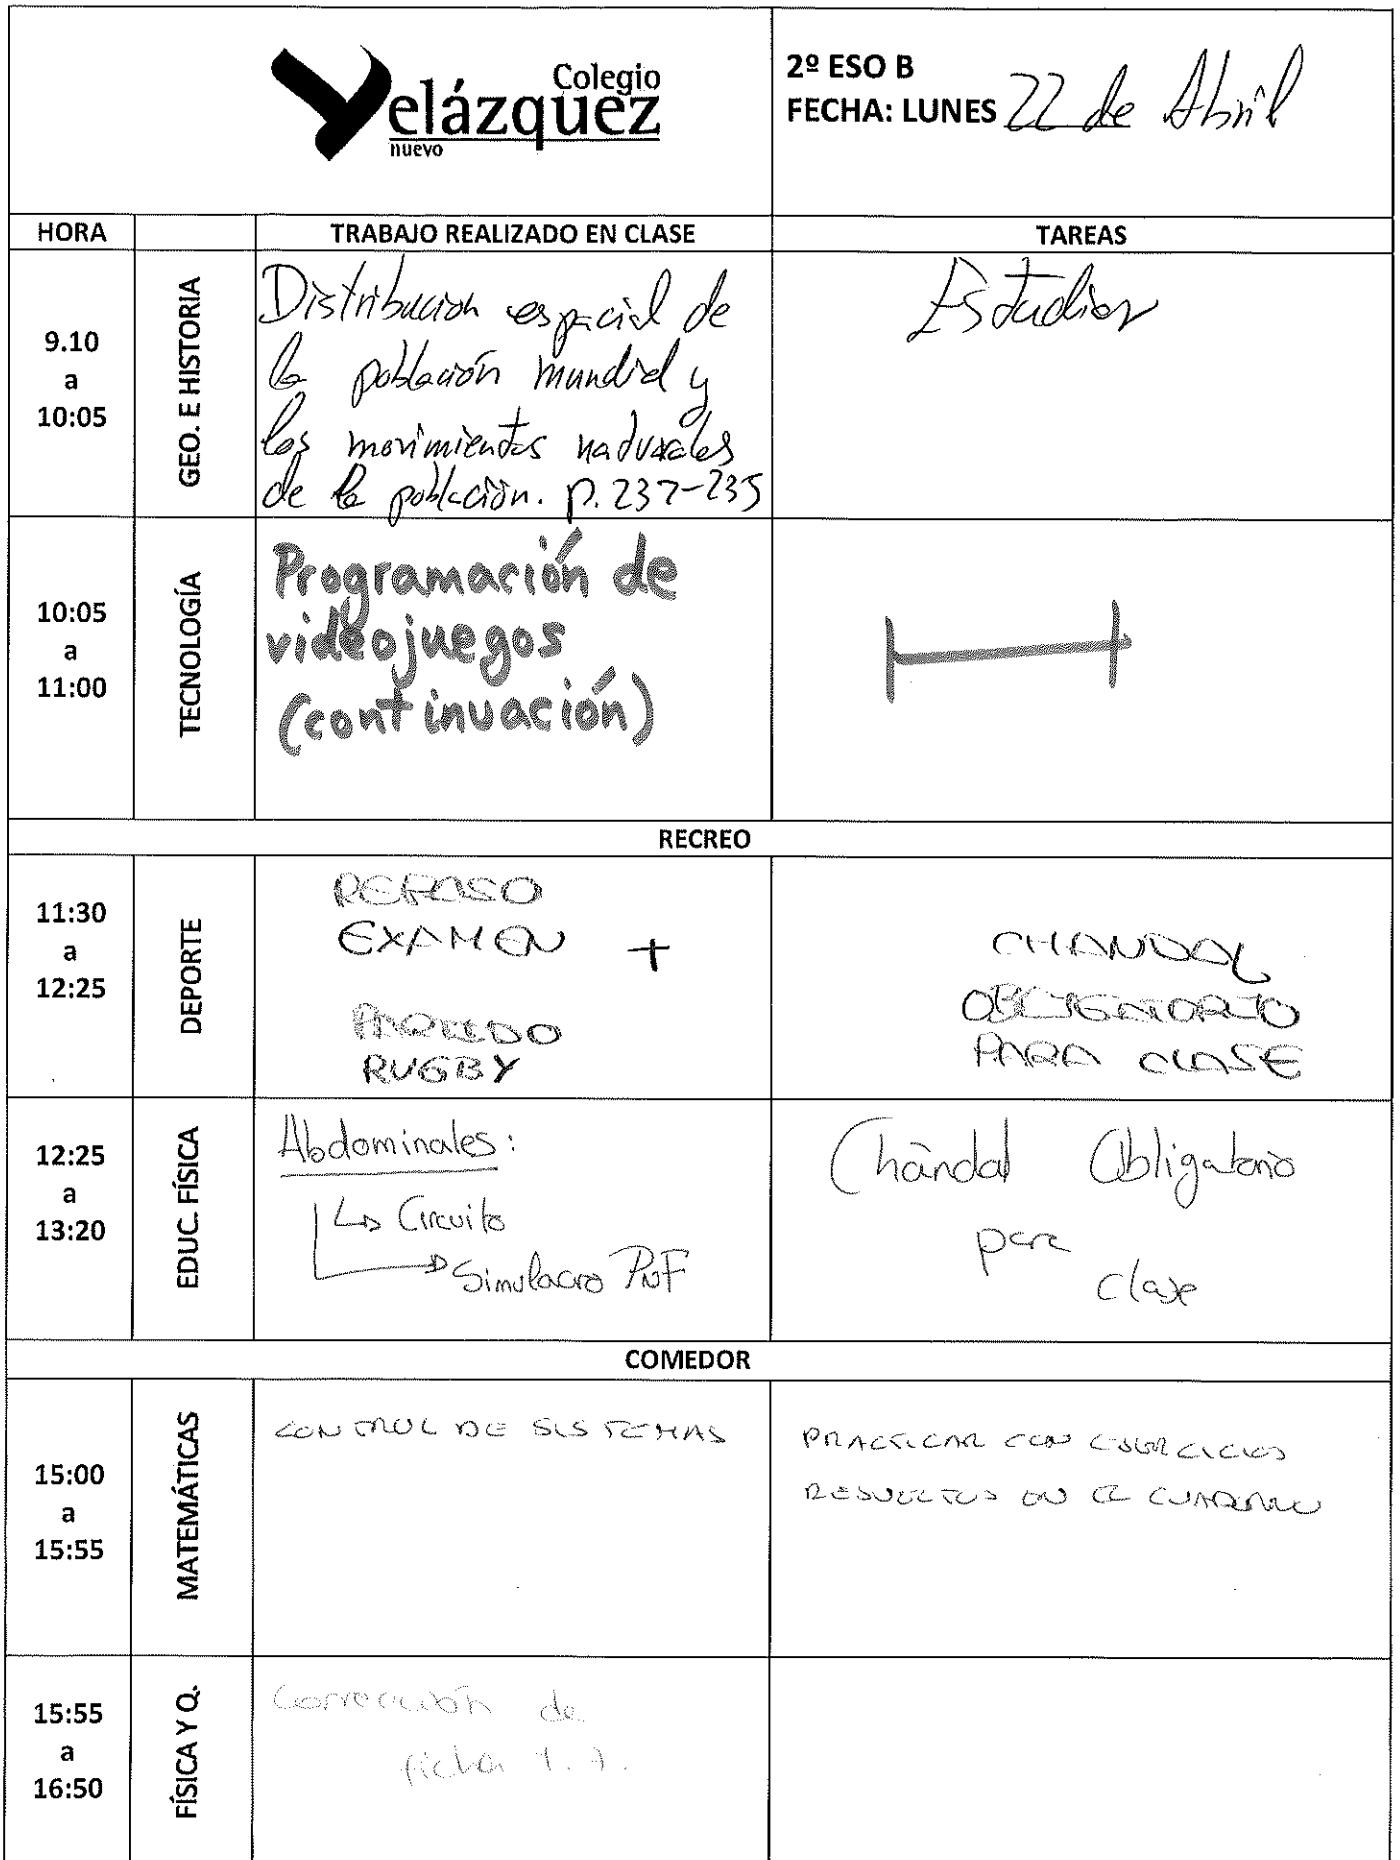 Colegio
Velázquez
nuevo
2º ESO B
FECHA: LUNES 22 de Abril
HORA
TRABAJO REALIZADO EN CLASE
TAREAS
9.10
a
10:05
GEO. E HISTORIA
Distribución espacial de
la población mundial y
los movimientos naturales
de la población. p. 232-235
Estudiar
10:05
a
11:00
TECNOLOGÍA
Programación de
videojuegos
(continuación)
RECREO
11:30
a
12:25
DEPORTE
REPASO
EXAMEN +
PARTIDO
RUGBY
CHANDAL
OBLIGATORIO
PARA CLASE
12:25
a
13:20
EDUC. FÍSICA
Abdominales:
↳ Circuito
→ Simulacro
Chándal Obligatorio
para
clase
COMEDOR
15:00
a
15:55
MATEMÁTICAS
CONTROL DE SISTEMAS
PRACTICAR CON EJERCICIOS
RESUELTOS EN EL CUADERNO
15:55
a
16:50
FÍSICA Y Q.
Corrección de
ficha 1.7.